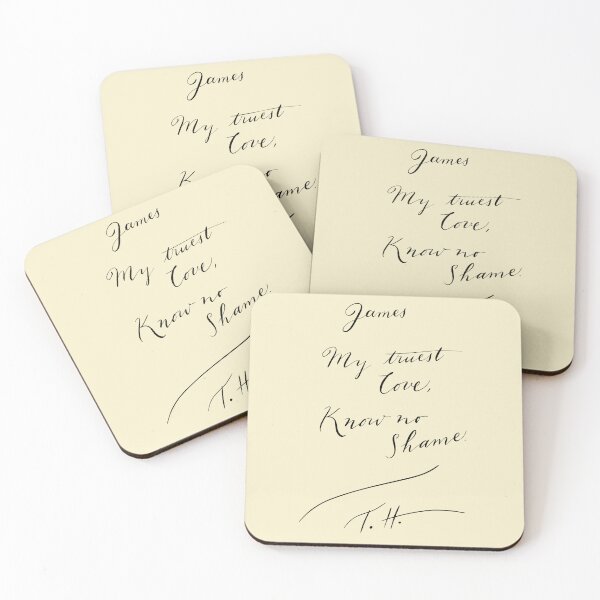 James
My truest
Love,
no
Shame.
James
My truest
Love,
Know no
Shame.
James
My truest
Love,
Know no
Shame.
T. H.
James
My truest
Love,
Know no
Shame.
T. H.